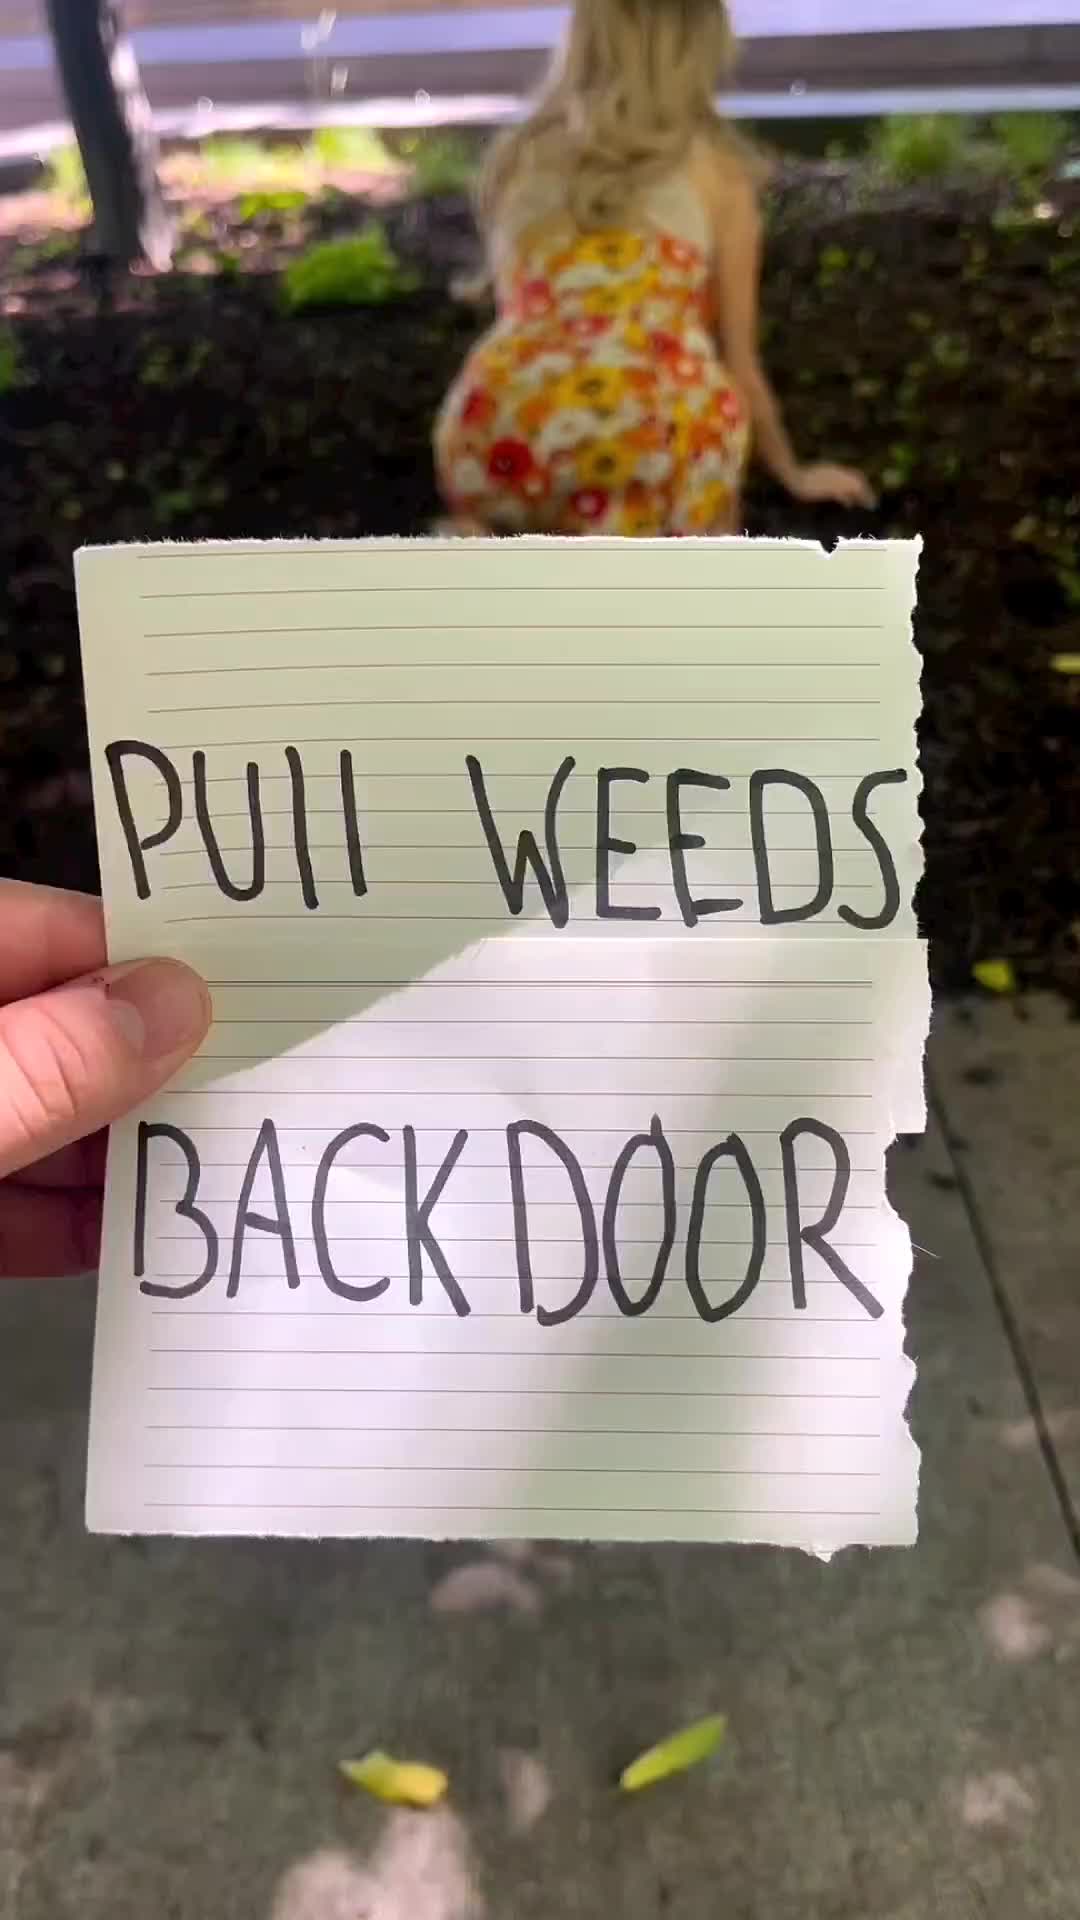 PUll WEEDS
BACKDOOR